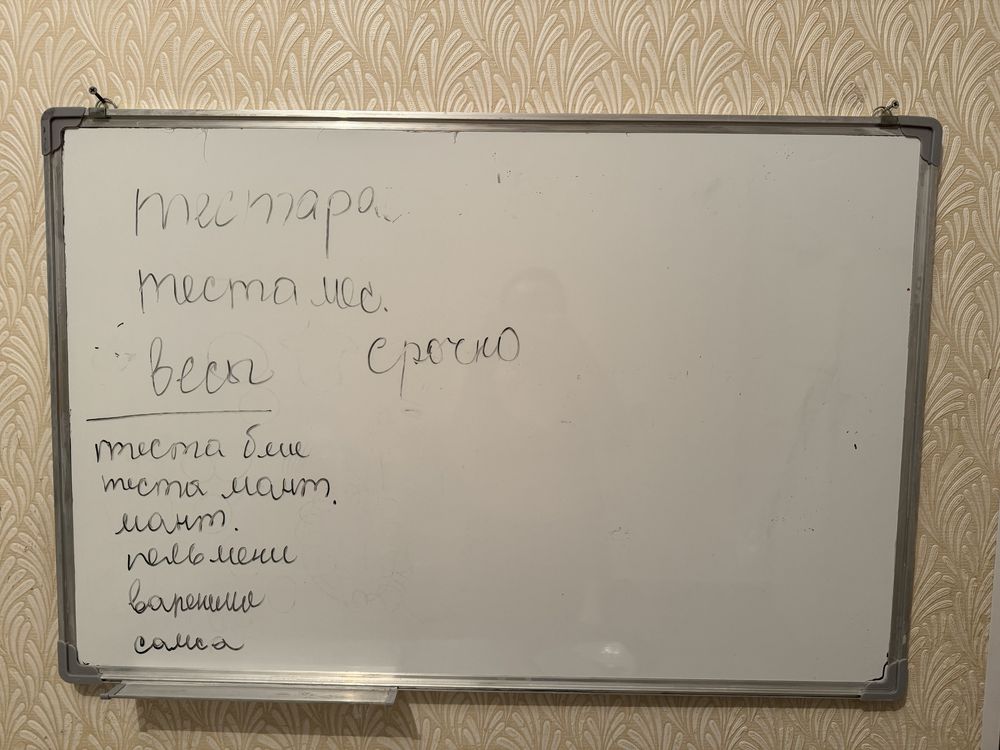 тестара
теста мес.
весы срочно
теста бле
теста мант.
мант.
пельмени
вареники
самса